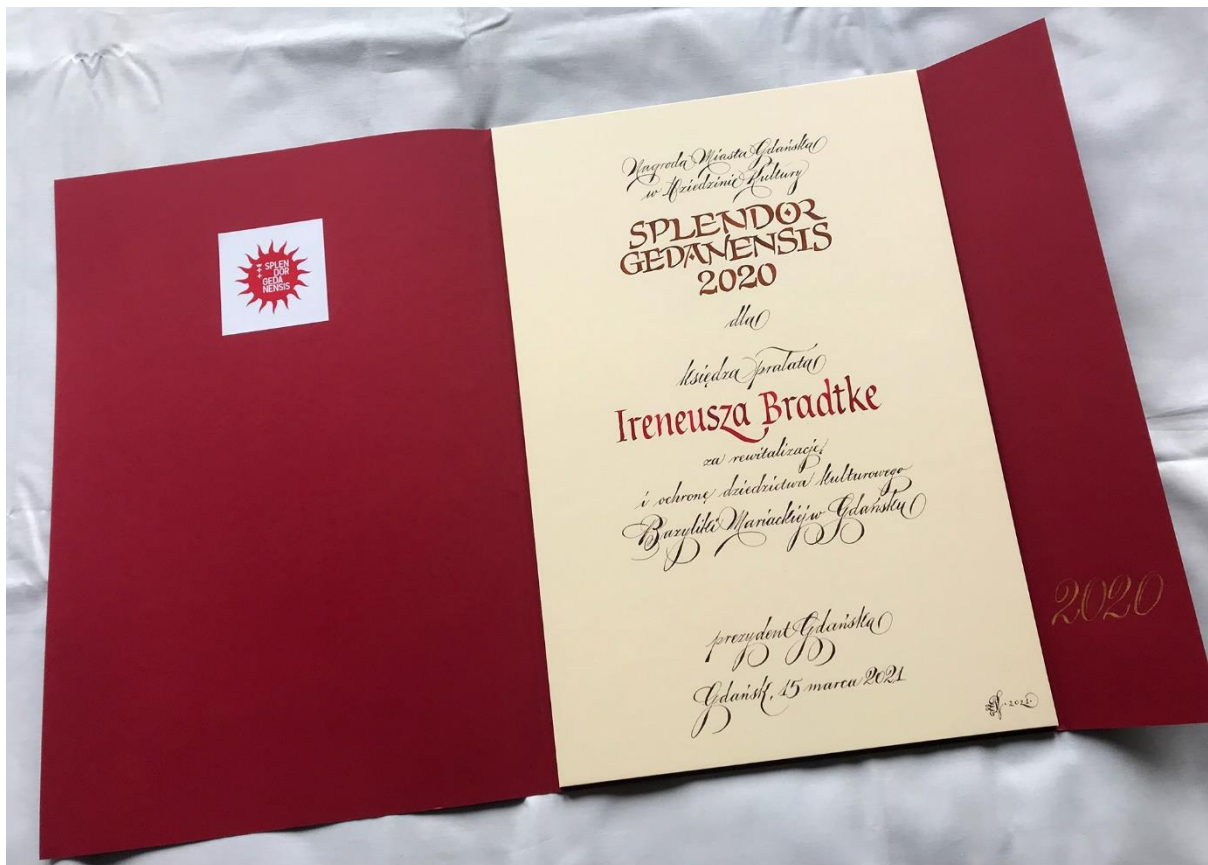 SPLEN
DOR
GEDA
NENSIS
Nagroda Miasta Gdańska
w Dziedzinie Kultury
SPLENDOR
GEDANENSIS
2020
dla
księdza prałata
Ireneusza Bradtke
za rewitalizację
i ochronę dziedzictwa kulturowego
Bazyliki Mariackiej w Gdańsku
prezydent Gdańska
Gdańsk, 15 marca 2021
2021
2020